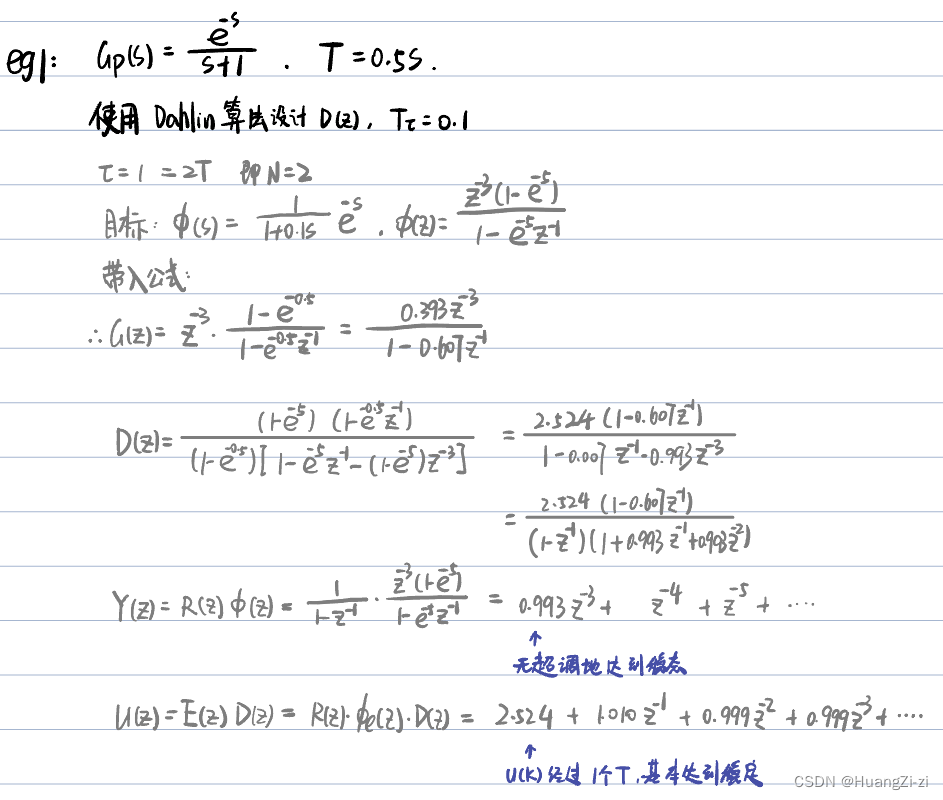 eg1: Gp(s) = e^{-s}/(s+1) . T = 0.5s.
使用 Dahlin 算法设计 D(z), Tτ = 0.1
τ = 1 = 2T 即 N=2
目标: ϕ(s) = 1/(1+0.1s) e^{-s} , ϕ(z) = z^{-3}(1-e^{-5})/(1-e^{-5}z^{-1})
带入公式:
∴ G(z) = z^{-3} · (1-e^{-0.5})/(1-e^{-0.5}z^{-1}) = 0.393z^{-3}/(1-0.607z^{-1})
D(z) = (1-e^{-5})(1-e^{-0.5}z^{-1})/((1-e^{-0.5})[1-e^{-5}z^{-1}-(1-e^{-5})z^{-3}]) = 2.524(1-0.607z^{-1})/(1-0.007z^{-1}-0.993z^{-3})
= 2.524(1-0.607z^{-1})/((1-z^{-1})(1+0.993z^{-1}+0.993z^{-2}))
Y(z) = R(z) ϕ(z) = 1/(1-z^{-1}) · z^{-3}(1-e^{-5})/(1-e^{-5}z^{-1}) = 0.993z^{-3} + z^{-4} + z^{-5} + ····
↑
无超调地达到稳态
U(z) = E(z) D(z) = R(z)·ϕe(z)·D(z) = 2.524 + 1.010z^{-1} + 0.999z^{-2} + 0.999z^{-3} + ····
↑
U(k) 经过 1个T, 基本达到稳定
CSDN @HuangZi-zi